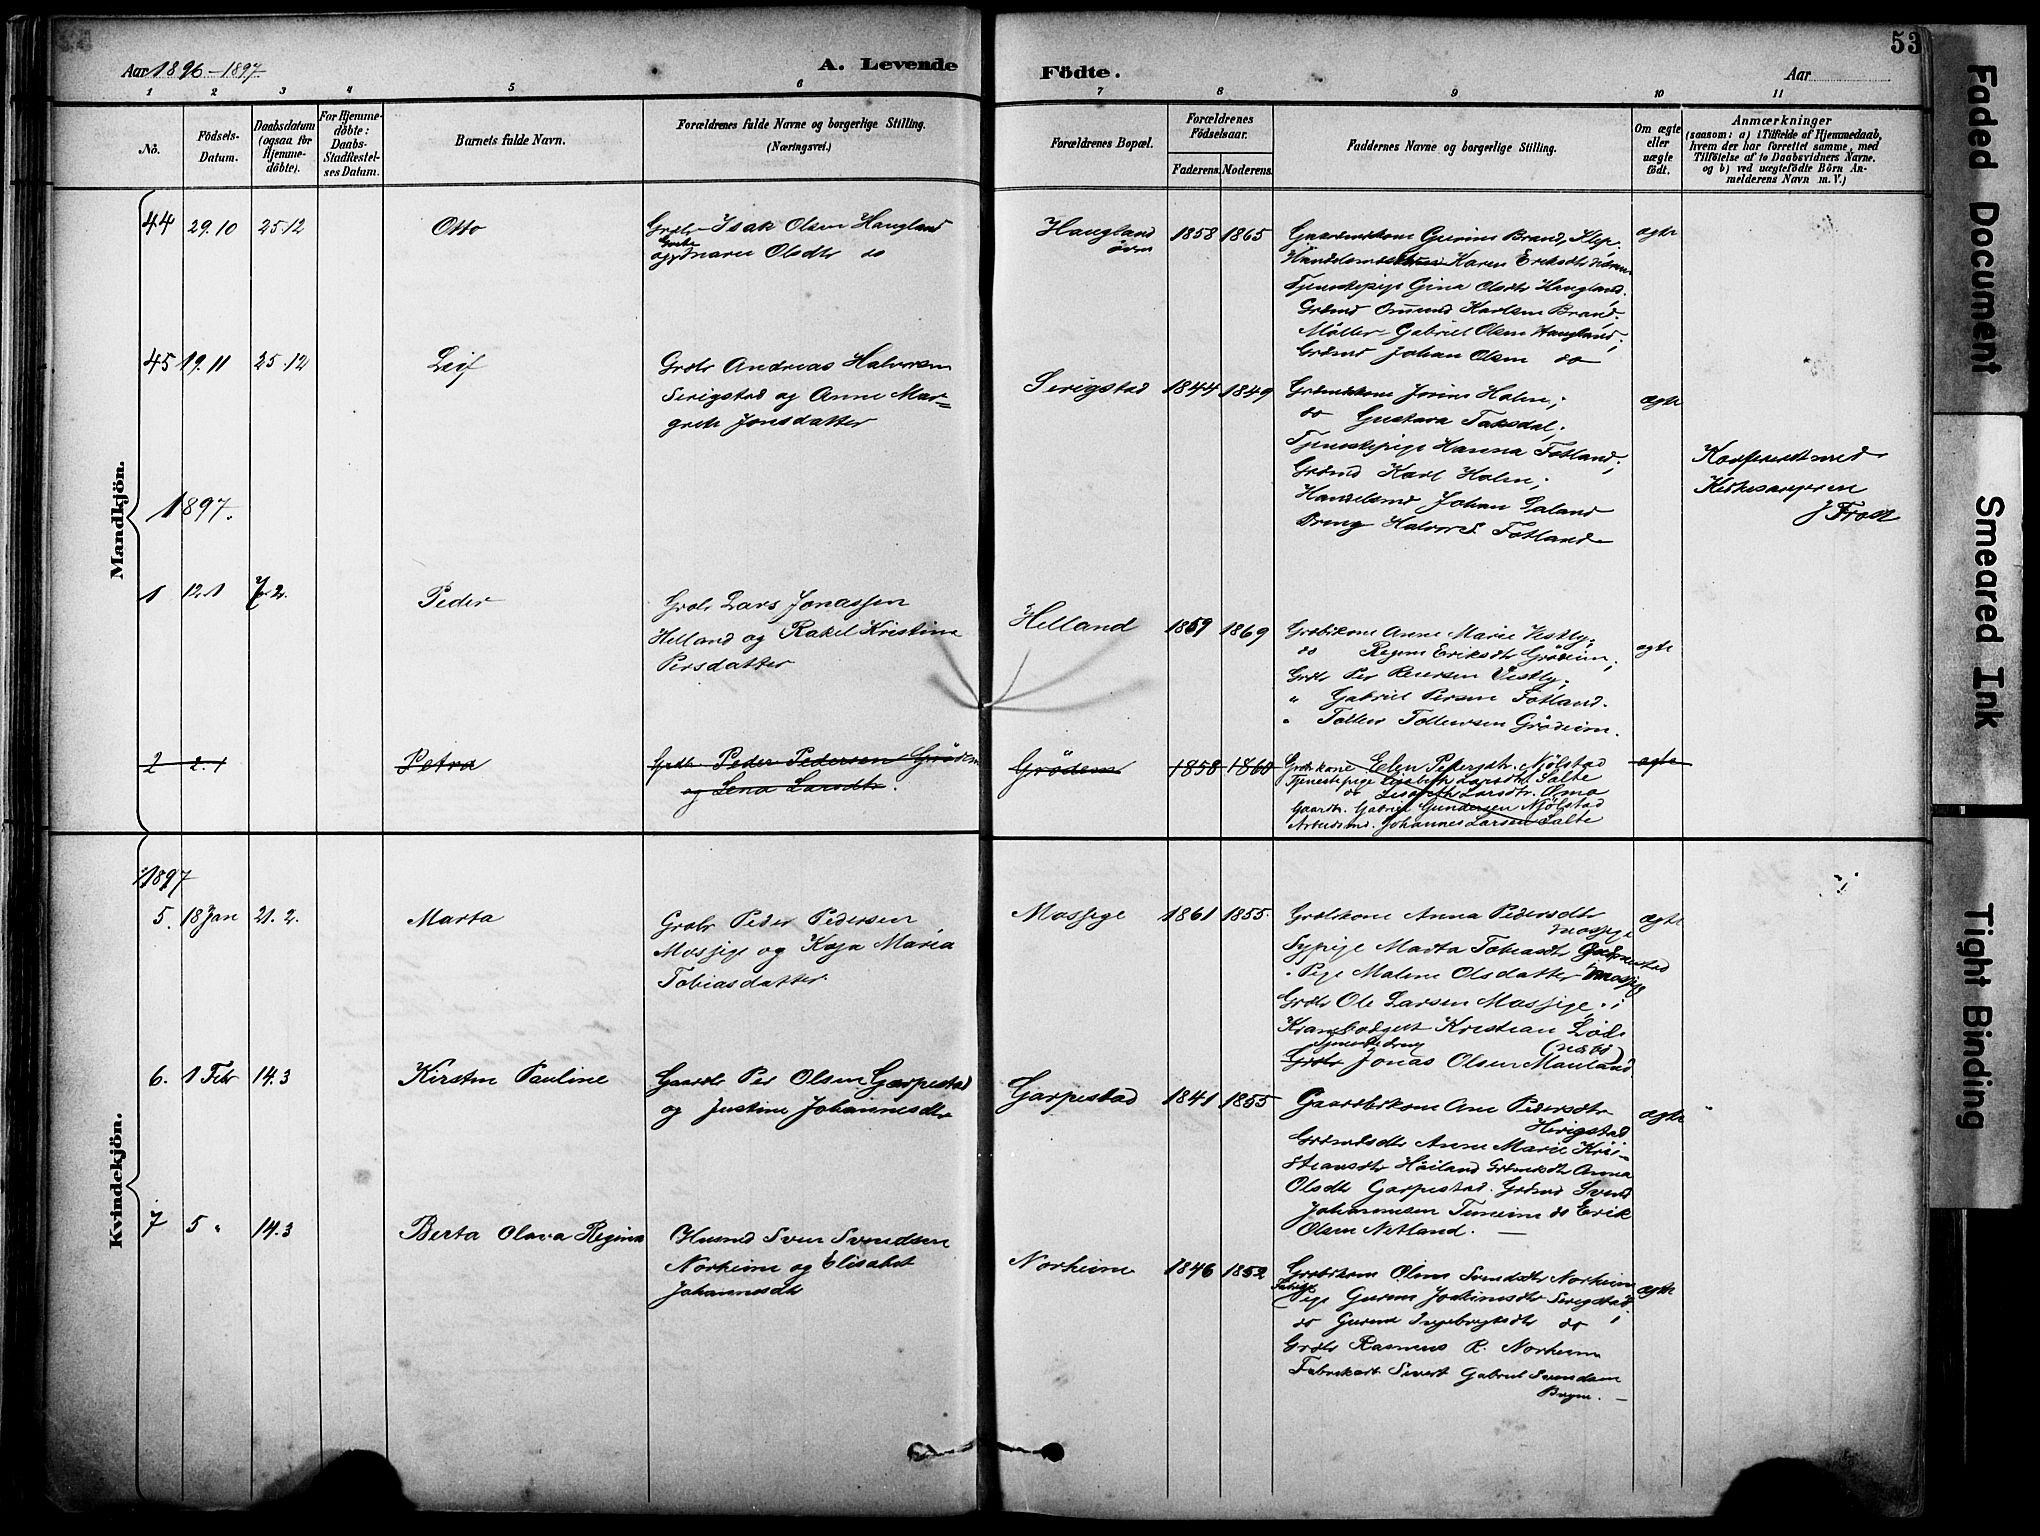 Aar 1896-1897.
A. Levende
Födte.
Aar
53
1 2 3 4 5 6 7 8 9 10 11
Nö.
Födsels-Datum.
Daabsdatum (ogsaa for Hjemme-döbte).
For Hjemme-döbte: Daabs-Stadfæstel-ses Datum.
Barnets fulde Navn.
Forældrenes fulde Navne og borgerlige Stilling.
(Næringsvei.)
Forældrenes Bopæl.
Forældrenes Födselsaar.
Faderens. Moderens.
Faddernes Navne og borgerlige Stilling.
Om ægte eller uægte födt.
Anmærkninger
(saasom: a) i Tilfælde af Hjemmedaab,
hvem der har forrettet samme, med
Tilföielse af to Daabsvidners Navne.
og b) ved uægtefödte Börn An-
melderens Navn m. V.)
Mandkjön.
44 29.10 25 12 Otto
Grdbr Isak Olsen Haugland
Olsdtr do
Haugland
1858 1865
Brand, Klep,
Karen Eriksdtr
Tjenestepige Gina Olsdtr Haugland.
Grdmd Omund Karlsen Brand.
Möller Gabriel Olsen Haugland,
Grdmd Johan Olsen do
ægte
45 19.11 25-12 Leif
Grdbr Andreas Halvorsen
Serigstad og Anne Mar=
grete Jonsdatter
Serigstad 1844 1849
Jorine Holen;
do Gustava Taksdal,
Tjenestepige Hanna Fotland;
Grdmd Karl Holen;
Handelsmd Johan Laland
Dreng Halvor S. Fotland
ægte
Konfereret med
Kirkesangeren
J Frost
1897.
1 12.1 7.2. Peder
Grdbr Lars Jonassen
Helland og Rakel Kristine
Persdatter
Helland 1859 1869
Grdbrkone Anne Marie Vestly;
do Eriksdtr Grödeim;
Grdbr Per Vestly;
" Gabriel Persen Fotland.
" Tollev Tollevsen Grödeim.
ægte
2 2.1 Petra
Grdbr Peder Pedersen Grödem
og Lena Larsdtr.
Grödem 1858 1860
Grdbrkone Elen Pedersdtr. Njölstad
Tjenestepige Lisabeth Larsdtr. Salte
do Lisabeth Larsdtr. Olma
Gaardbr. Gabriel Gundersen Njölstad
Arbeidsmd. Johannes Larsen Salte
ægte
Kvindekjön.
1897
5. 18 Jan 21. 2. Marta
Grdbr Peder Pedersen
Mossige og Kaja Maria
Tobiasdatter
Mossige 1861 1855.
Grdbrkone Anna Pedersdtr
Mossige
Sypige Marta Tobiasdtr
Pige Malene Olsdatter Mossige
Grdbr Ole Larsen Mossige;
Kristian Löde
(Nærbö)
Grdbr Jonas Olsen Mauland
ægte
6. 1 Febr 14.3 Kirsten Pauline
Gaardbr Per Olsen Garpestad
og Justine Johannesdtr
Garpestad 1841 1855
Gaardbrkone Ane Pedersdtr
Herigstad
Grdmdsdtr Anne Marie Kri-
stiansdtr Höiland Grdmdsdtr Anna
Olsdtr Garpestad. Grdmd Svend
Johannesen Tuneim do Erik
Olsen Netland.
ægte
7 5 " 14.3 Berta Olava Regina
Husmd Sven Svendsen
Norheim og Elisabet
Johannesdtr
Norheim 1846 1852
Grdbrkone Olene Svendsdtr Norheim
Pige Gurine Joakimsdtr Serigstad
do Gurine Ingebregtsdtr do
Grdbr Rasmus R. Norheim
Fabrikarb. Sivert Gabriel Svendsen
Bryne.
ægte
Faded Document
Smeared Ink
Tight Binding